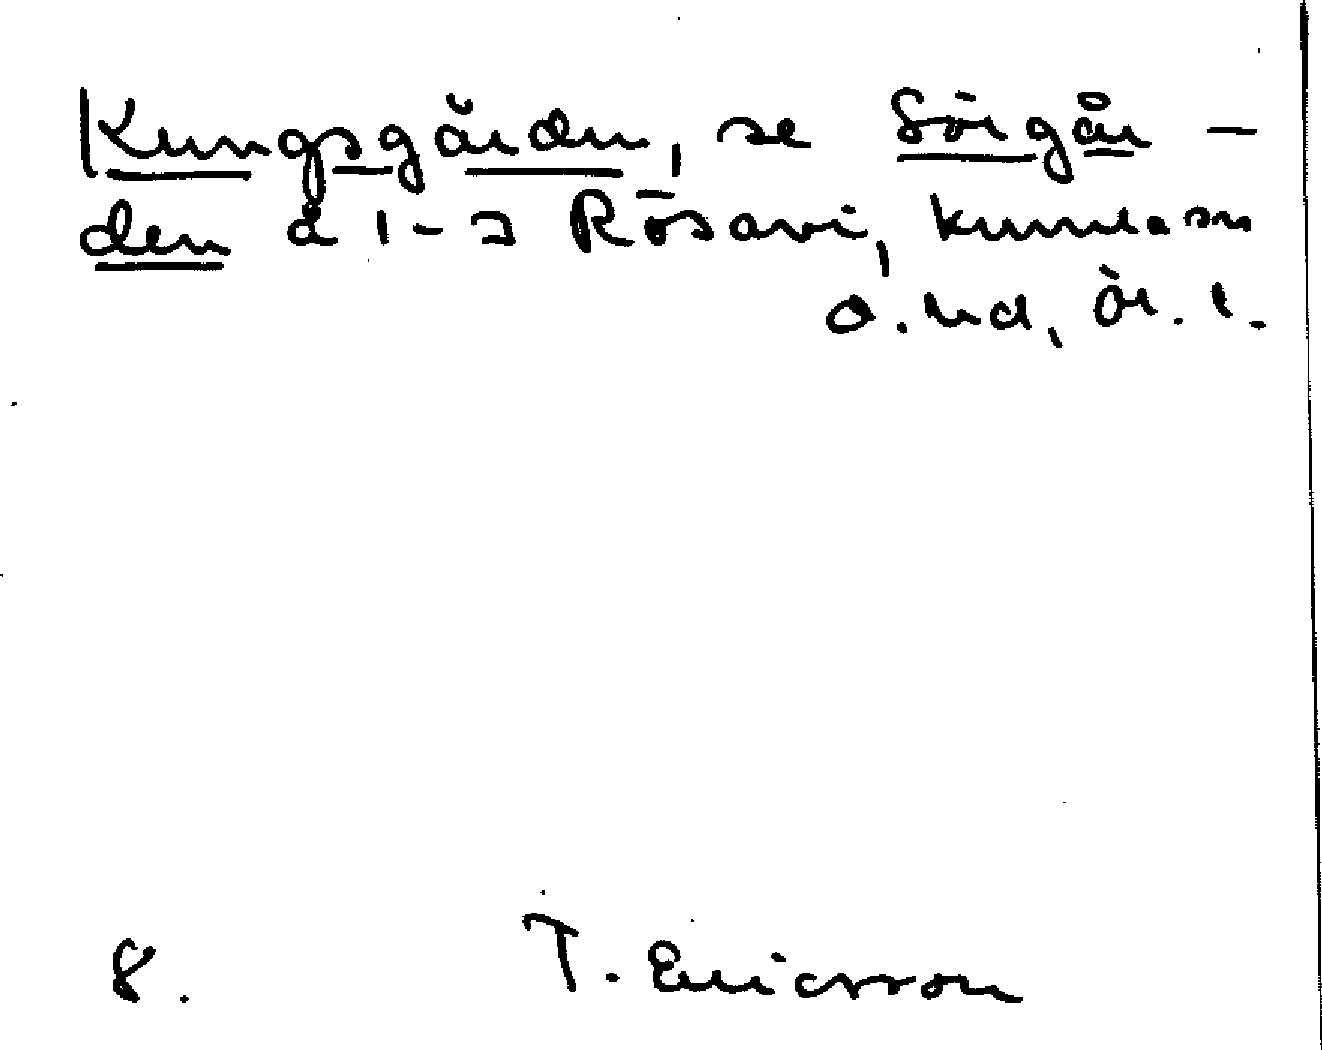 Kungsgården, se Sörgår-
den å 1-2 Rösavi, Kumla sn
o. hd, Ör. l.
8. T. Ericsson